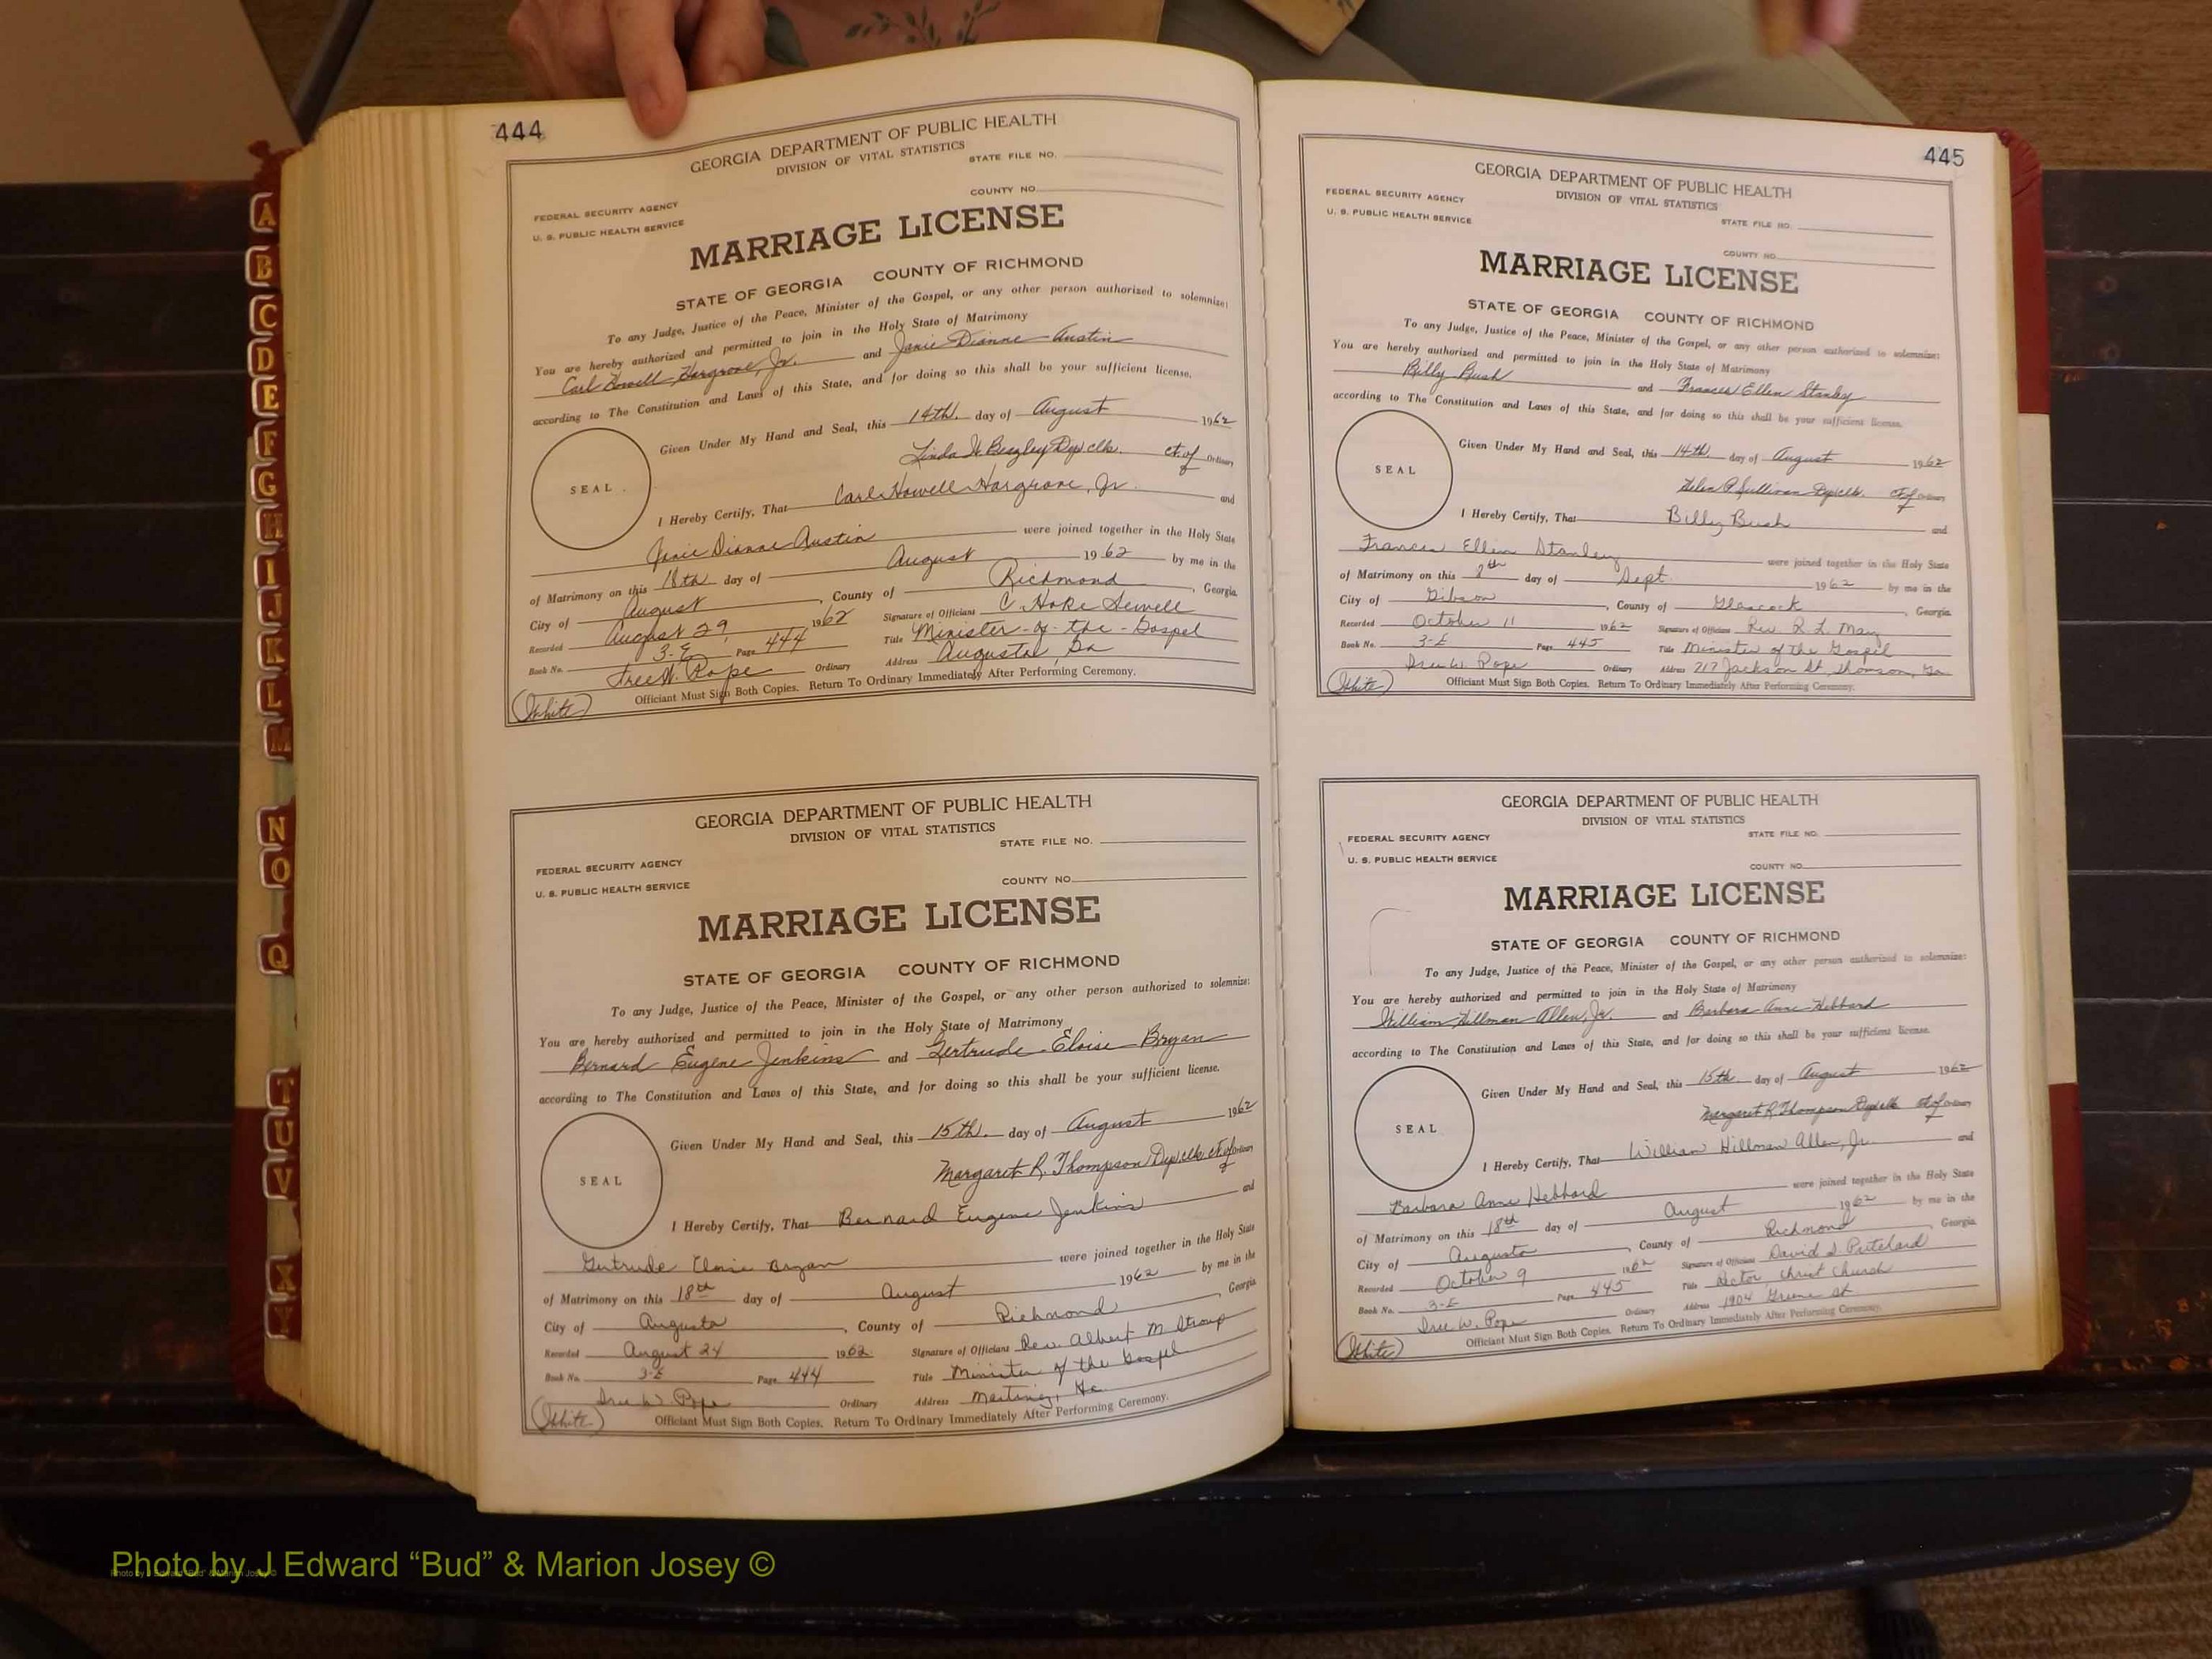 444
GEORGIA DEPARTMENT OF PUBLIC HEALTH
DIVISION OF VITAL STATISTICS
STATE FILE NO.
COUNTY NO.
FEDERAL SECURITY AGENCY
U. S. PUBLIC HEALTH SERVICE
MARRIAGE LICENSE
STATE OF GEORGIA COUNTY OF RICHMOND
To any Judge, Justice of the Peace, Minister of the Gospel, or any other person authorized to solemnize:
You are hereby authorized and permitted to join in the Holy State of Matrimony
Carl Howell Hargrove, Jr. and Janie Dianne Austin
according to The Constitution and Laws of this State, and for doing so this shall be your sufficient license.
Given Under My Hand and Seal, this 14th. day of August 1962
Linda H. Beazley Dep clk. Ct. of Ordinary
SEAL
I Hereby Certify, That Carl Howell Hargrove, Jr. and
Janie Dianne Austin were joined together in the Holy State
of Matrimony on this 18th day of August 1962 by me in the
City of August , County of Richmond , Georgia.
Recorded August 29, 1962 Signature of Officiant C. Hoke Sewell
Book No. 3-E Page 444 Title Minister-of-the-Gospel
Tree W. Pope Ordinary Address Augusta, Ga
(White) Officiant Must Sign Both Copies. Return To Ordinary Immediately After Performing Ceremony.
GEORGIA DEPARTMENT OF PUBLIC HEALTH
DIVISION OF VITAL STATISTICS
STATE FILE NO.
COUNTY NO.
FEDERAL SECURITY AGENCY
U. S. PUBLIC HEALTH SERVICE
MARRIAGE LICENSE
STATE OF GEORGIA COUNTY OF RICHMOND
To any Judge, Justice of the Peace, Minister of the Gospel, or any other person authorized to solemnize:
You are hereby authorized and permitted to join in the Holy State of Matrimony
Bernard Eugene Jenkins and Gertrude Eloise Bryan
according to The Constitution and Laws of this State, and for doing so this shall be your sufficient license.
Given Under My Hand and Seal, this 15th. day of August 1962
Margaret R. Thompson Dep clk. Ct. of Ordinary
SEAL
I Hereby Certify, That Bernard Eugene Jenkins and
Gertrude Eloise Bryan were joined together in the Holy State
of Matrimony on this 18th day of August 1962 by me in the
City of Augusta , County of Richmond , Georgia
Recorded August 24 1962 Signature of Officiant Rev. Albert M. Stroup
Book No. 3-E Page 444 Title Minister of the Gospel
W. Pope Ordinary Address Martinez, Ga.
(White) Officiant Must Sign Both Copies. Return To Ordinary Immediately After Performing Ceremony.
445
GEORGIA DEPARTMENT OF PUBLIC HEALTH
DIVISION OF VITAL STATISTICS
FEDERAL SECURITY AGENCY
U. S. PUBLIC HEALTH SERVICE
STATE FILE NO.
COUNTY NO.
MARRIAGE LICENSE
STATE OF GEORGIA COUNTY OF RICHMOND
To any Judge, Justice of the Peace, Minister of the Gospel, or any other person authorized to solemnize:
You are hereby authorized and permitted to join in the Holy State of Matrimony
Billy Bush and Frances Ellen Stanley
according to The Constitution and Laws of this State, and for doing so this shall be your sufficient license.
Given Under My Hand and Seal, this 14th. day of August 1962
Helen P. Sullivan Dep clk. Ct. of Ordinary
SEAL
I Hereby Certify, That Billy Bush and
Frances Ellen Stanley were joined together in the Holy State
of Matrimony on this 8th day of Sept. 1962 by me in the
City of Gibson , County of Glascock , Georgia.
Recorded October 11 1962 Signature of Officiant Rev. R. L. May
Book No. 3-E Page 445 Title Minister of the Gospel
W. Pope Ordinary Address 717 Jackson St, Thomson, Ga.
(White) Officiant Must Sign Both Copies. Return To Ordinary Immediately After Performing Ceremony.
GEORGIA DEPARTMENT OF PUBLIC HEALTH
DIVISION OF VITAL STATISTICS
FEDERAL SECURITY AGENCY
STATE FILE NO.
U. S. PUBLIC HEALTH SERVICE
COUNTY NO.
MARRIAGE LICENSE
STATE OF GEORGIA COUNTY OF RICHMOND
To any Judge, Justice of the Peace, Minister of the Gospel, or any other person authorized to solemnize:
You are hereby authorized and permitted to join in the Holy State of Matrimony
William Hillman Allen, Jr. and Barbara Anne Hebbard
according to The Constitution and Laws of this State, and for doing so this shall be your sufficient license.
Given Under My Hand and Seal, this 15th. day of August 1962
Margaret R. Thompson Dep clk Ct. of Ordinary
SEAL
I Hereby Certify, That William Hillman Allen, Jr. and
Barbara Anne Hebbard were joined together in the Holy State
of Matrimony on this 18th day of August 1962 by me in the
City of Augusta , County of Richmond , Georgia
Recorded October 9 1962 Signature of Officiant David S. Pritchard
Book No. 3-E Page 445 Title Rector, Christ Church
W. Pope Ordinary Address 1904 Greene St.
(White) Officiant Must Sign Both Copies. Return To Ordinary Immediately After Performing Ceremony.
A
B
C
D
E
F
G
H
I
J
K
L
M
N
O
Q
T
U
V
X
Y
Photo by J Edward “Bud” & Marion Josey ©
Photo by J Edward “Bud” & Marion Josey ©